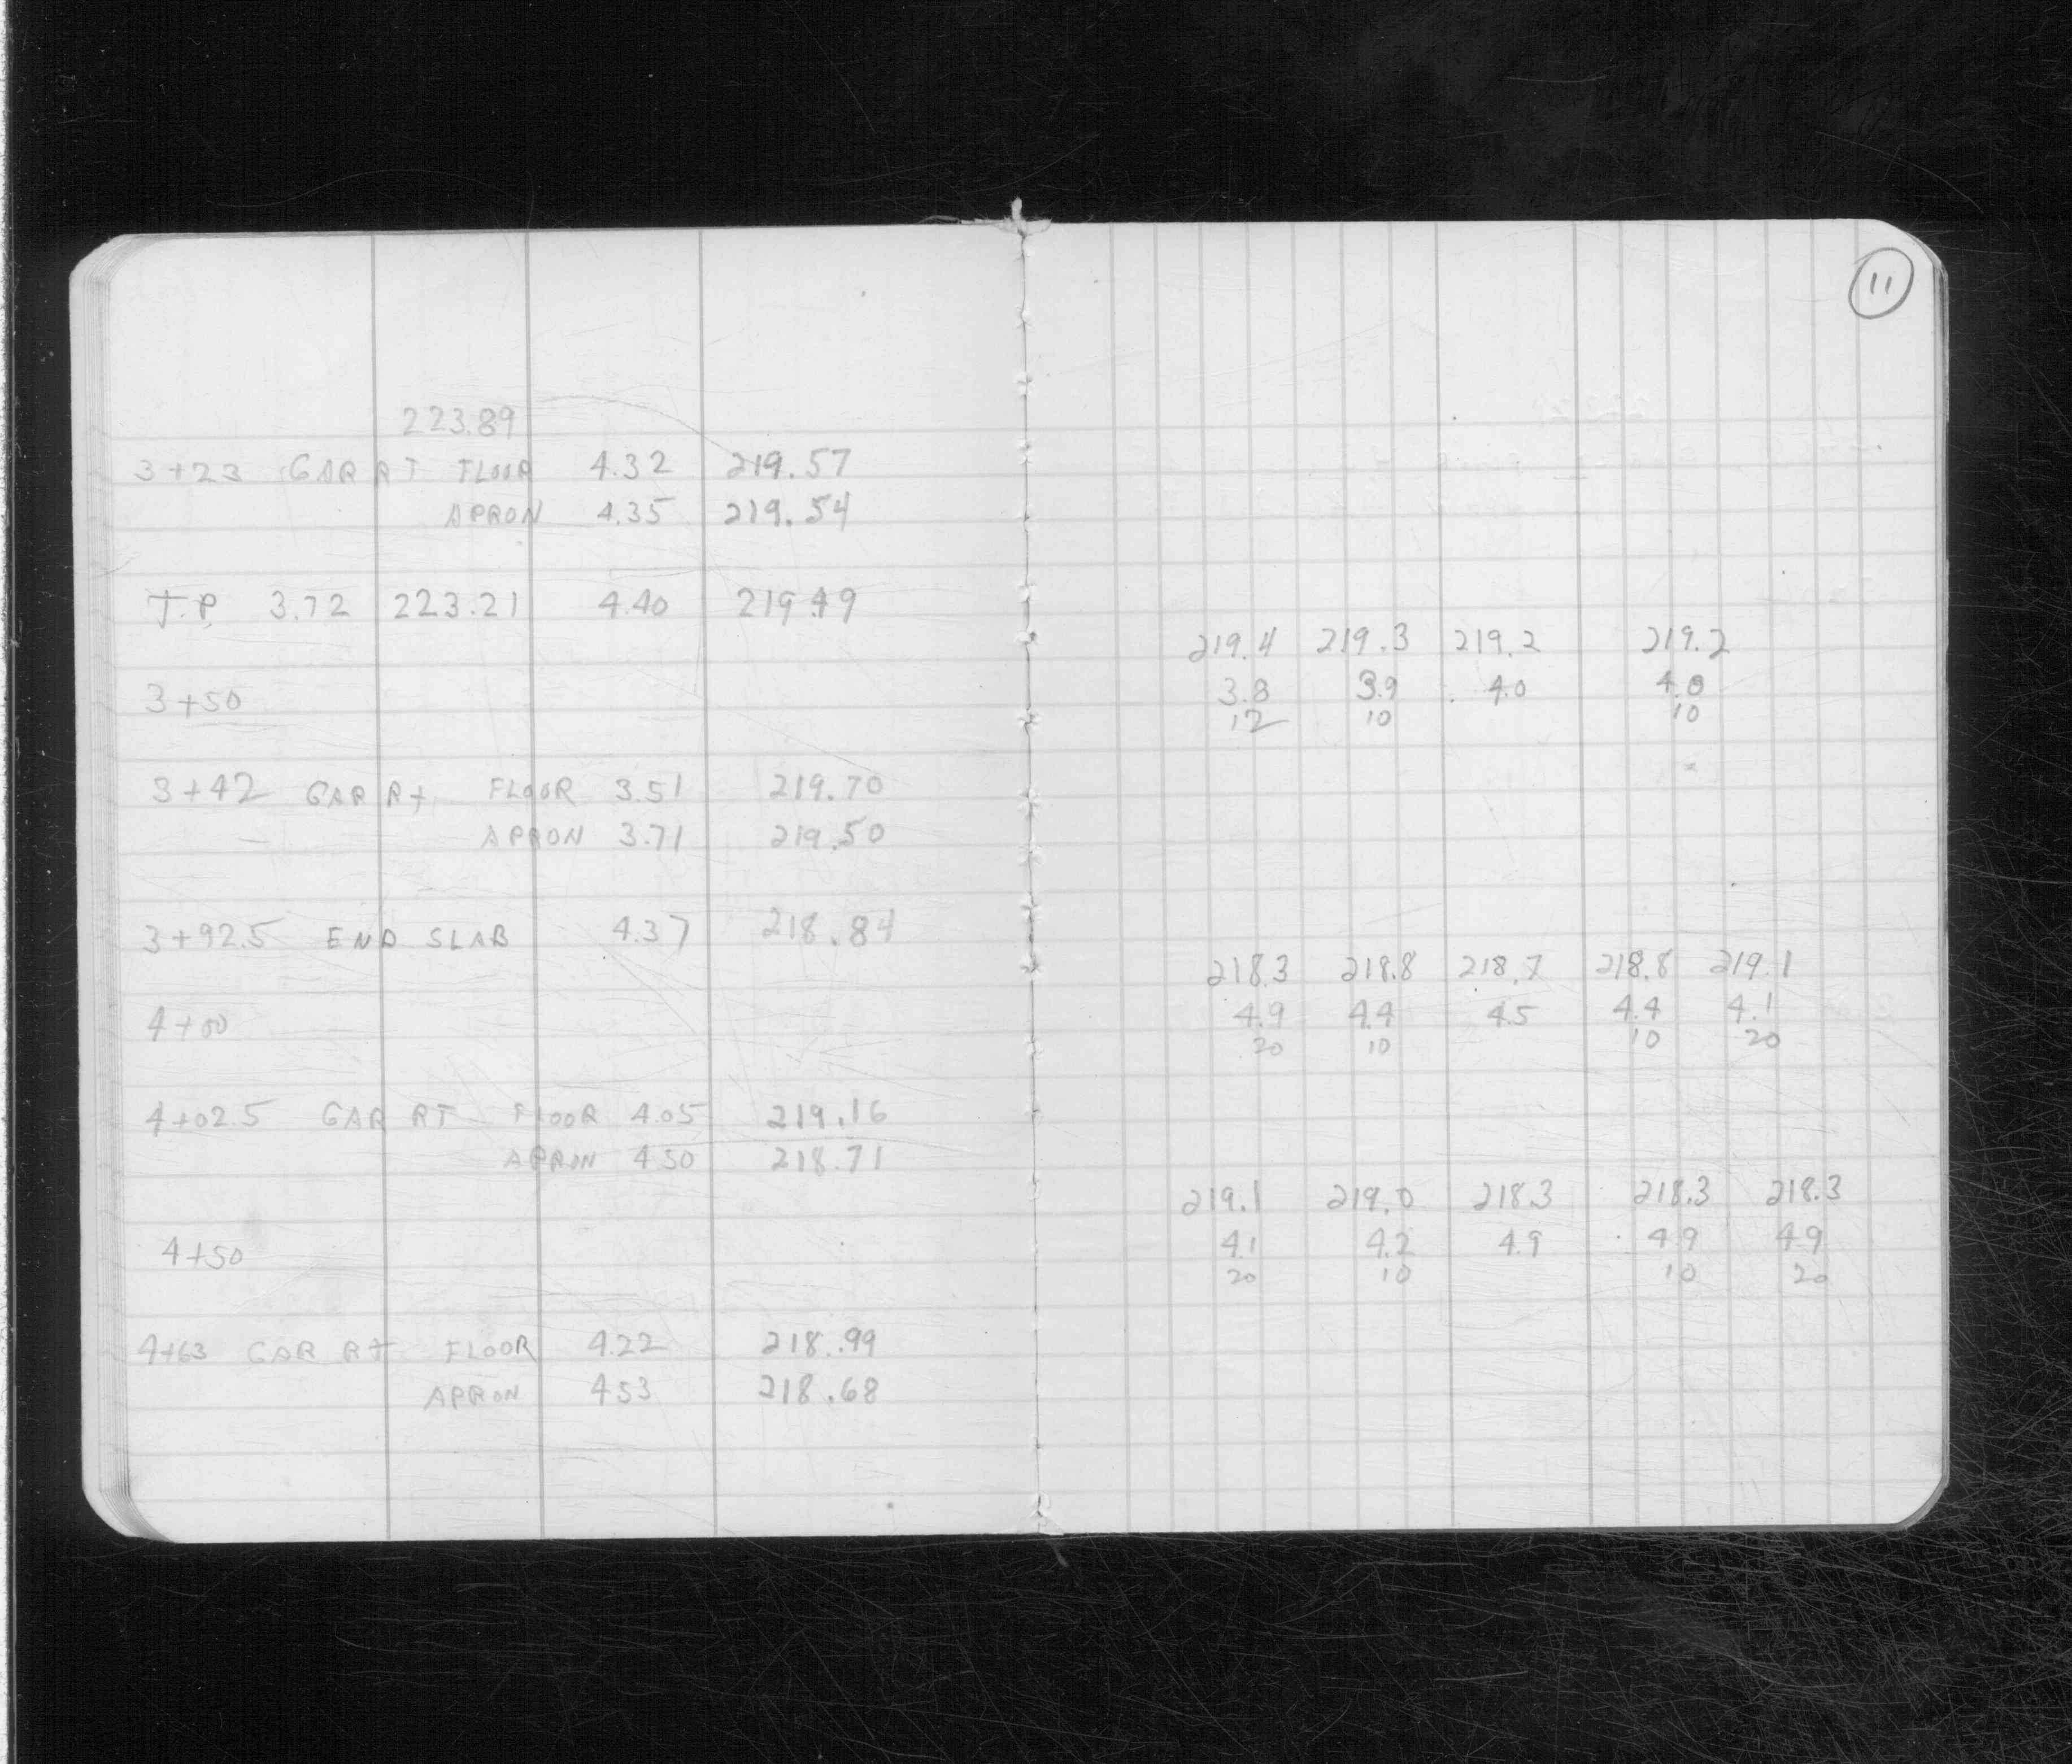 223.89
3+23 GAR RT FLOOR 4.32 219.57
APRON 4.35 219.54
T.P. 3.72 223.21 4.40 219.49
3+50
3+42 GAR Rt FLOOR 3.51 219.70
APRON 3.71 219.50
3+92.5 END SLAB 4.37 218.84
4+00
4+02.5 GAR RT FLOOR 4.05 219.16
APRON 4.50 218.71
4+50
4+63 GAR Rt FLOOR 4.22 218.99
APRON 4.53 218.68
11
219.4 219.3 219.2 219.2
3.8 3.9 4.0 4.0
12 10 10
218.3 218.8 218.7 218.8 219.1
4.9 4.4 4.5 4.4 4.1
20 10 10 20
219.1 219.0 218.3 218.3 218.3
4.1 4.2 4.9 4.9 4.9
20 10 10 20